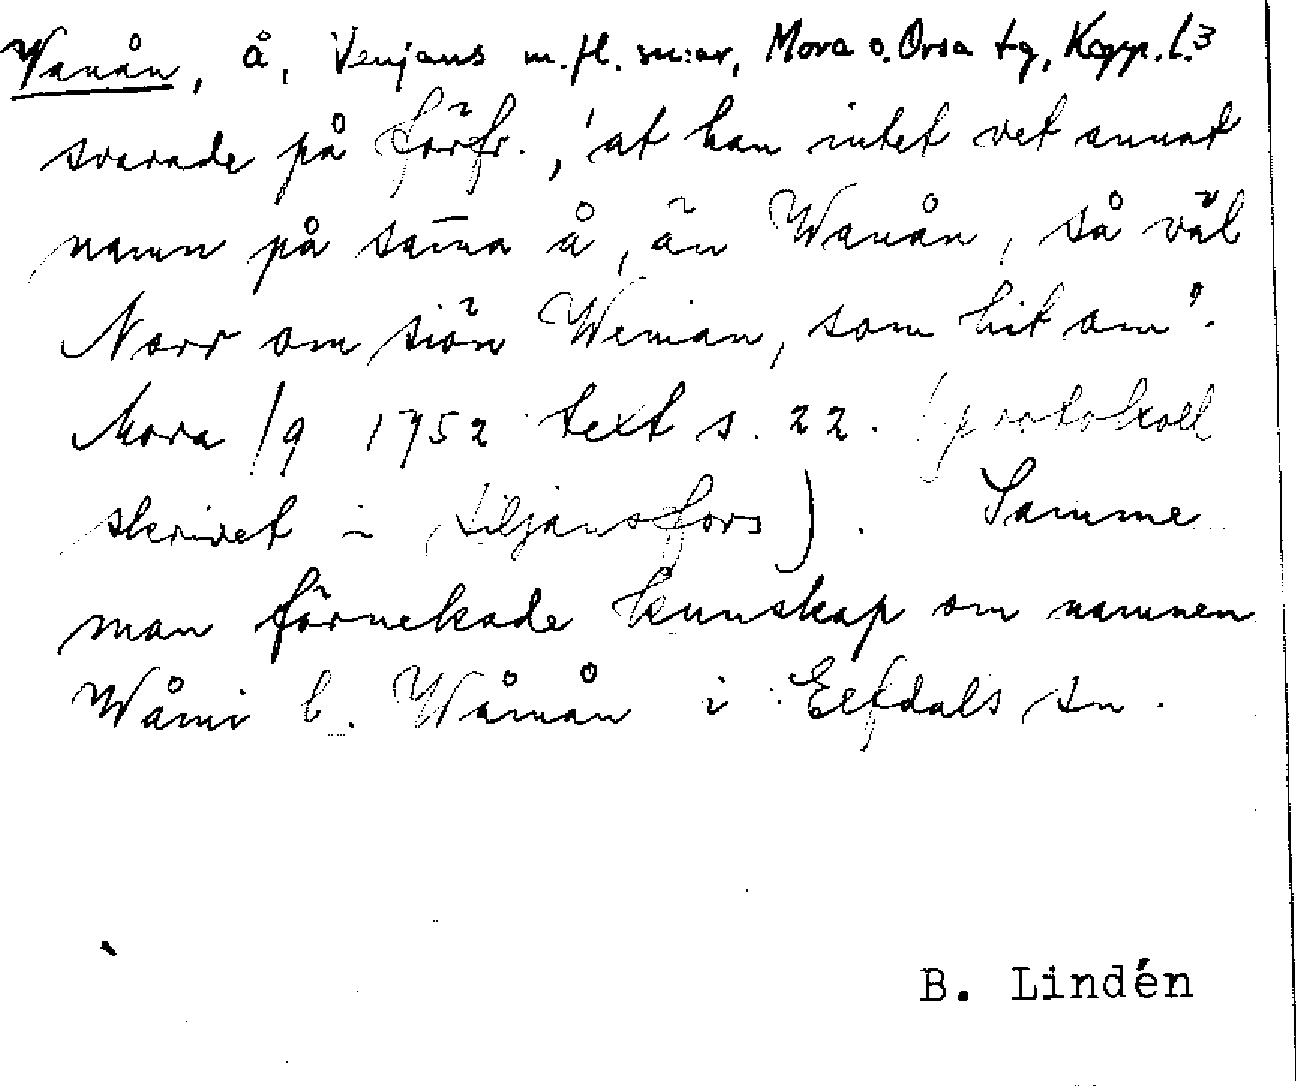 Vanån, å, Venjans m.fl. sn:ar, Mora o. Orsa tg, Kopp. l. 3
svarade på förfr., 'at han intet vet annat
namn på sam̄a å, än Wanån, så väl
Norr om siön Wenian, som hit om".
Mora 1/9 1752 text s. 22. (protokoll
skrivet i Siljansfors). Samme
man förnekade kunskap om namnen
Wåmi l. Wåmån i Elfdals sn.
B. Lindén